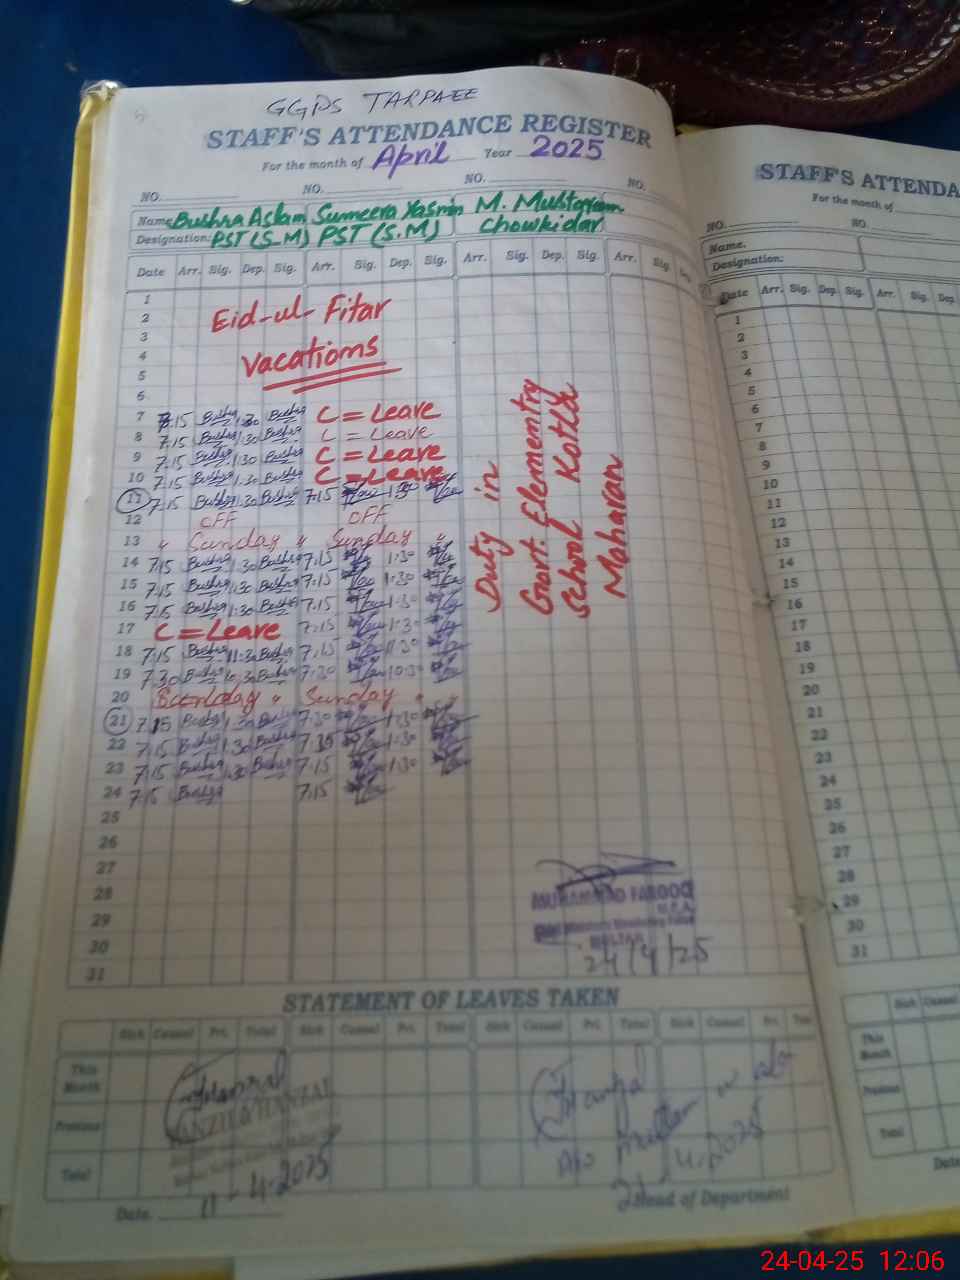 GGPS TARPAEE
STAFF'S ATTENDANCE REGISTER
For the month of April Year 2025
NO. NO. NO. NO.
Name Bushra Aslam Sumeera Yasmin M. Mustaqeem
Designation: PST (S.M) PST (S.M) Chowkidar
Date Arr. Sig. Dep. Sig. Arr. Sig. Dep. Sig. Arr. Sig. Dep. Sig. Arr. Sig. Dep.
1
2 Eid-ul-Fitar
3
4 Vacations
5
6
7 7:15 Bushra 1:30 Bushra C = Leave
8 7:15 Bushra 1:30 Bushra C = Leave
9 7:15 Bushra 1:30 Bushra C = Leave
10 7:15 Bushra 1:30 Bushra C = Leave
11 7:15 Bushra 1:30 Bushra 7:15 1:30
12 OFF OFF
13 " Sunday " Sunday "
14 7:15 Bushra 1:30 Bushra 7:15 1:30
15 7:15 Bushra 1:30 Bushra 7:15 1:30
16 7:15 Bushra 1:30 Bushra 7:15 1:30
17 C = Leave 7:15 1:30
18 7:15 Bushra 11:30 Bushra 7:15 11:30
19 7:30 Bushra 10:30 Bushra 7:30 10:30
20 Sunday " Sunday " "
21 7:15 Bushra 1:30 Bushra 7:30 1:30
22 7:15 Bushra 1:30 Bushra 7:15 1:30
23 7:15 Bushra 1:30 Bushra 7:15 1:30
24 7:15 Bushra 7:15
25
26
27
28
29
30
31
Duty in
Govt. Elementry
School Kotla
Maharan
MUHAMMAD FAROOQ
MULTAN
24/4/25
STATEMENT OF LEAVES TAKEN
Sick Casual Pri. Total Sick Casual Pri. Total Sick Casual Pri. Total Sick Casual Pri.
This Month
Previous
Total
11-4-2025
21-4-2025
Date. Head of Department
STAFF'S ATTENDA
For the month of
NO. NO.
Name.
Designation:
Date Arr. Sig. Dep. Sig. Arr. Sig. Dep
1
2
3
4
5
6
7
8
9
10
11
12
13
14
15
16
17
18
19
20
21
22
23
24
25
26
27
28
29
30
31
Sick Casual
This Month
Previous
Total
Date
24-04-25 12:06